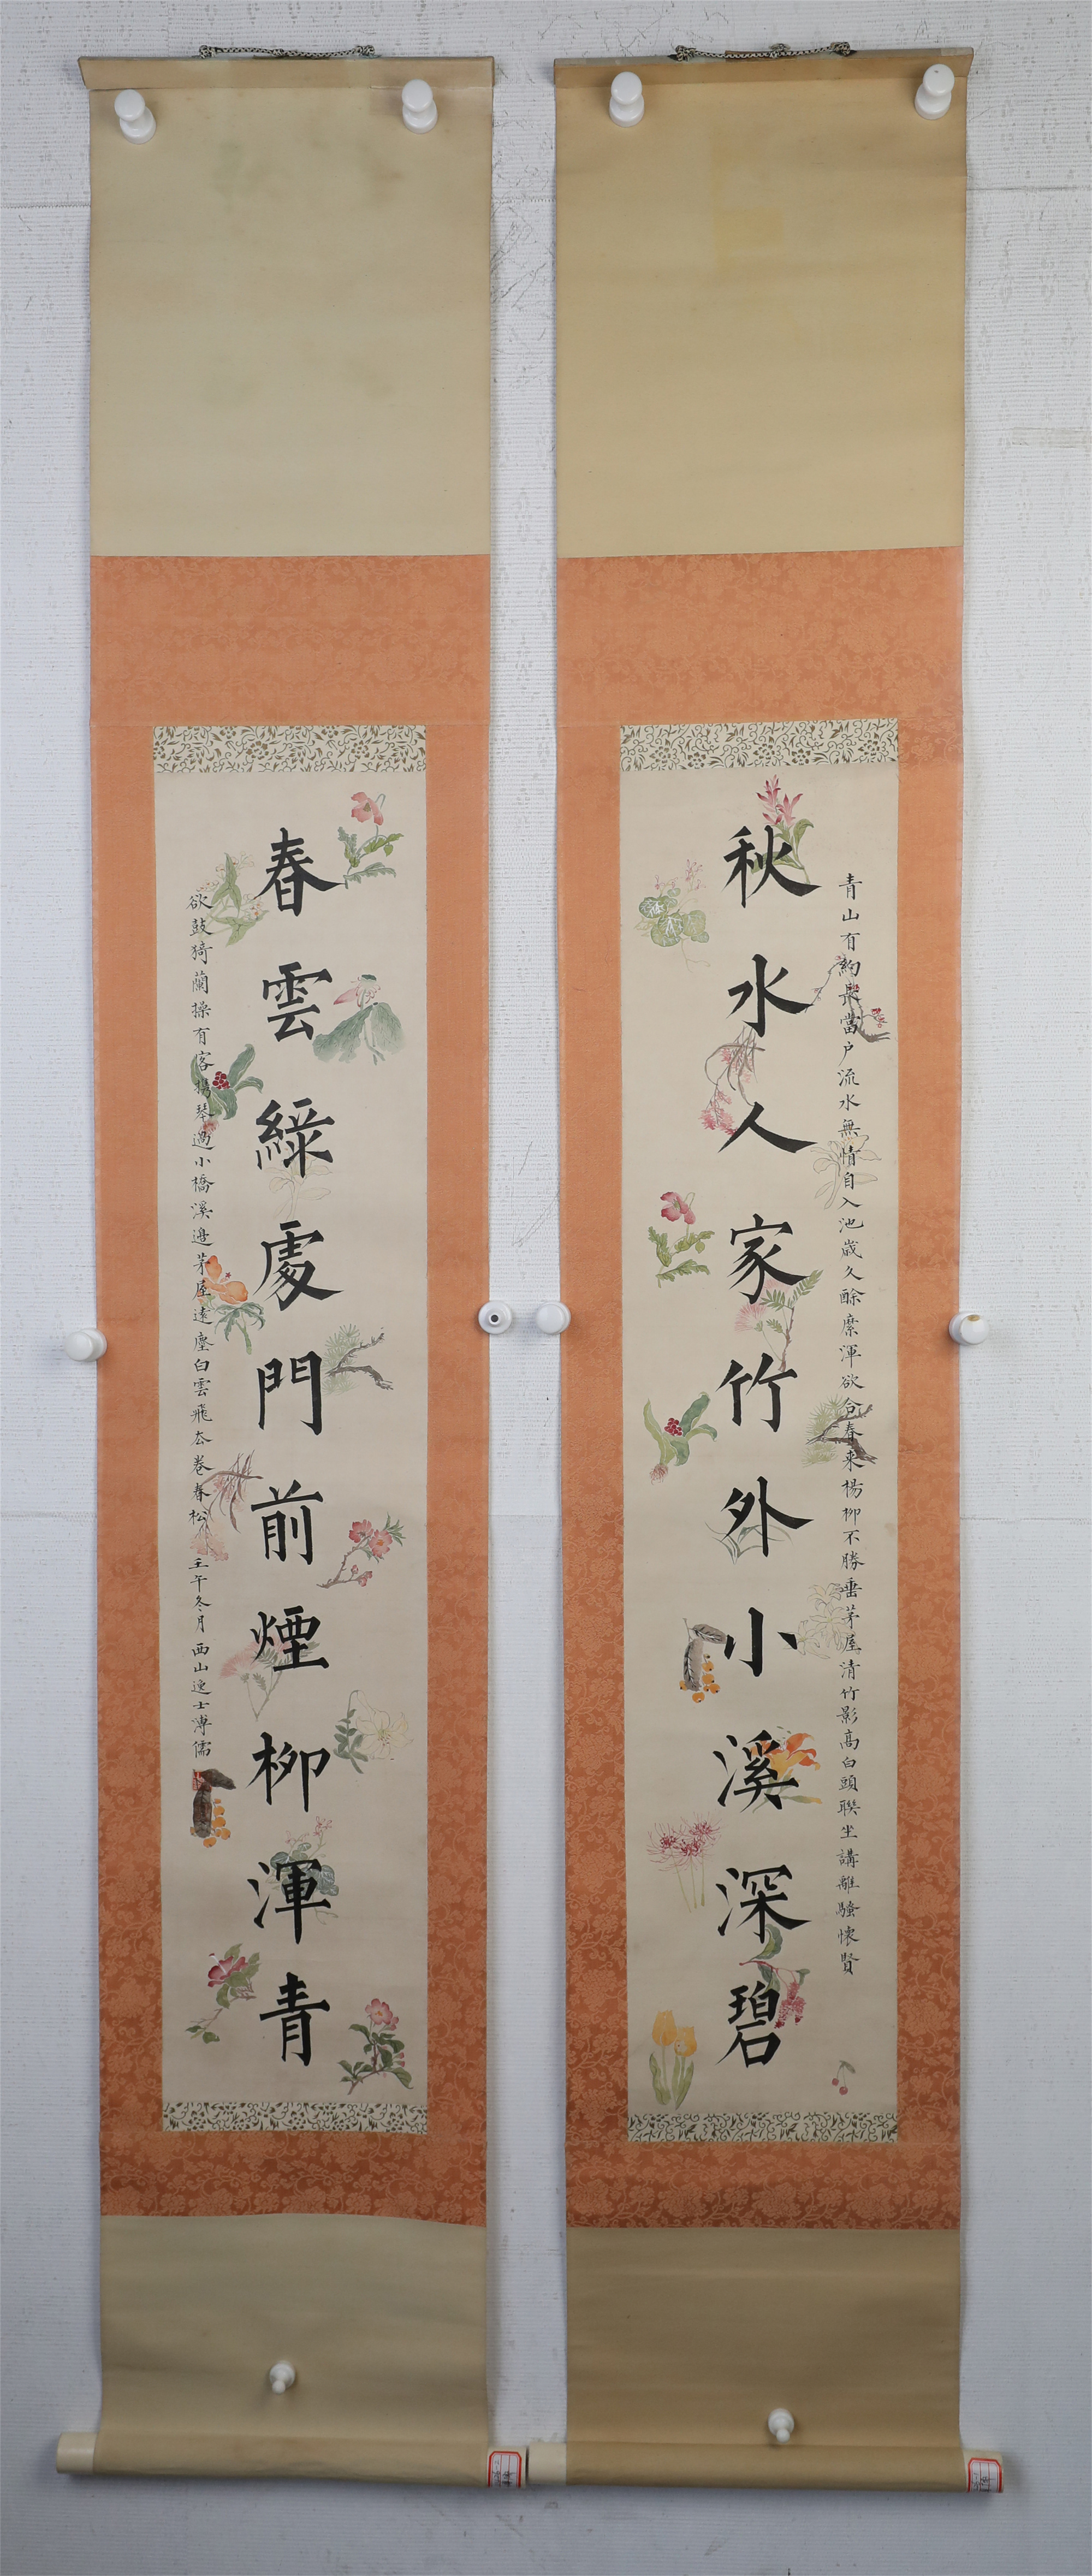 秋水人家竹外小溪深碧
青山有約長當户流水無情自入池歲久酴縻渾欲合春來楊柳不勝垂茅屋清竹影高白頭聯坐講離騷懷賢
春雲綠處門前煙柳渾青
欲鼓猗蘭操有客攜琴過小橋溪邊茅屋遠塵白雲飛去卷春松
壬午冬月 西山逸士溥儒